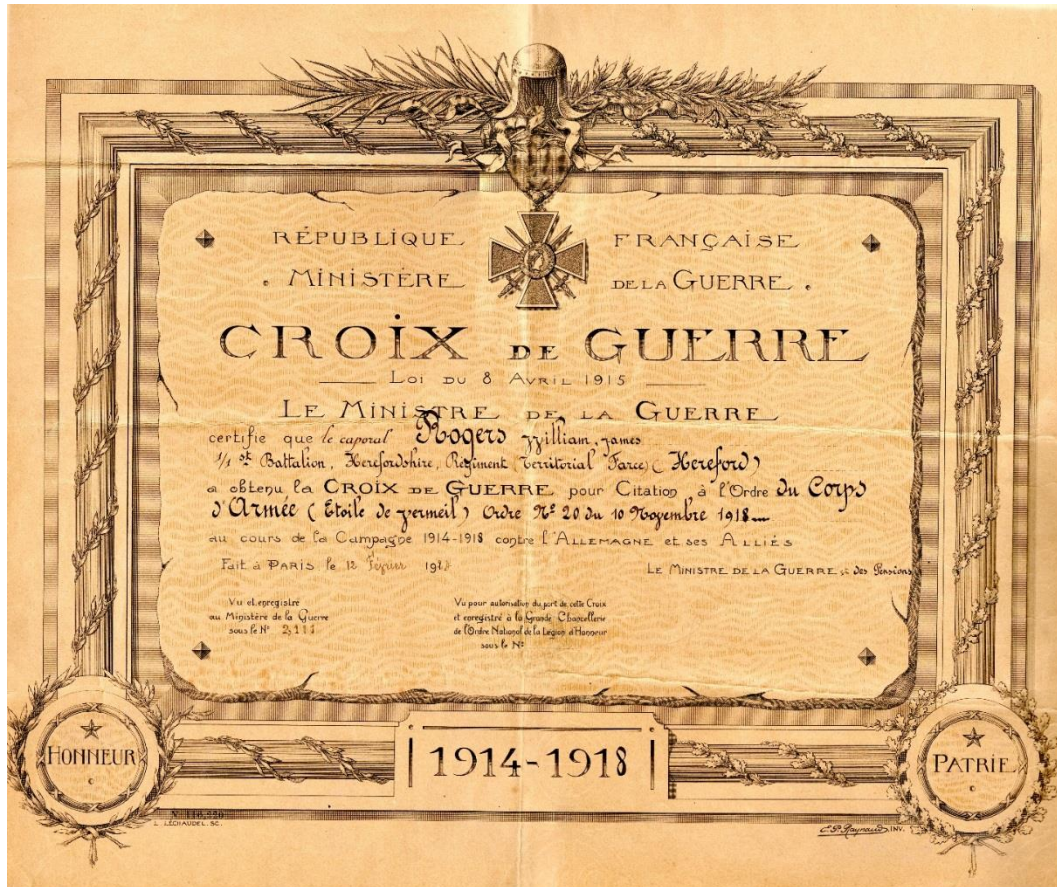 RÉPUBLIQUE FRANÇAISE
MINISTÈRE DE LA GUERRE
CROIX DE GUERRE
LOI DU 8 AVRIL 1915
LE MINISTRE DE LA GUERRE
certifie que le caporal Rogers William, James
1/1 st Battalion, Herefordshire, Regiment (Territorial Farce) (Hereford)
a obtenu la CROIX DE GUERRE pour Citation à l'Ordre du Corps
d'Armée (Etoile de vermeil) Ordre No 20 du 10 Novembre 1918
au cours de la Campagne 1914-1918 contre l'ALLEMAGNE et ses ALLIÉS
Fait à PARIS le 12 Février
LE MINISTRE DE LA GUERRE et des Pensions
Vu et enregistré
au Ministère de la Guerre
sous le No 2,111
Vu pour autorisation du port de cette Croix
et enregistré à la Grande Chancellerie
de l'Ordre National de la Légion d'Honneur
sous le No
HONNEUR
1914-1918
PATRIE
L. LÉCHAUDEL. SC.
C.P. Raynaud INV.